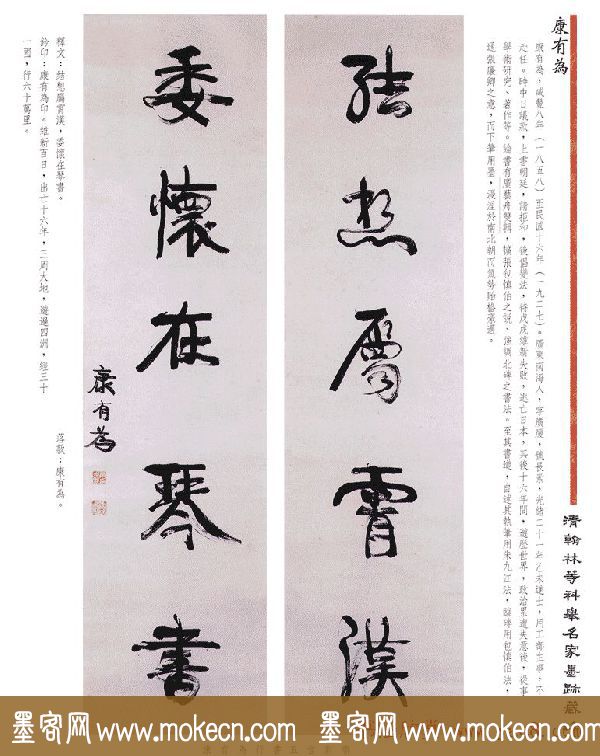 清翰林等科舉名家墨跡
康有為
康有為，咸豐八年（一八五八）至民國十六年（一九二七）。廣東南海人，字廣廈，號長素，光緒二十一年乙未進士，用工部主事，不
赴任。時中日議和，上書朝廷，請拒和，後倡變法，待戊戌維新失敗，逃亡日本，其後十六年間，遊歷世界，政治界遭失意後，從事
學術研究、著作等。始書有廣藝舟雙楫，擴張包慎伯之說，倡導北碑之書法。至其書道，自述其執筆用朱九江法，臨碑用包慎伯法，
通張廉卿之意，而下筆用墨，浸淫於南北朝而氣勢
結想屬霄漢
委懷在琴書
康有為
釋文：結想屬霄漢，委懷在琴書。
鈐印：康有為印。維新百日，出亡十六年，三周大地，遊遍四洲，經三十
一國，行六十萬里。
落款：康有為。
墨客网 www.mokecn.com 墨客网 www.mokecn.com